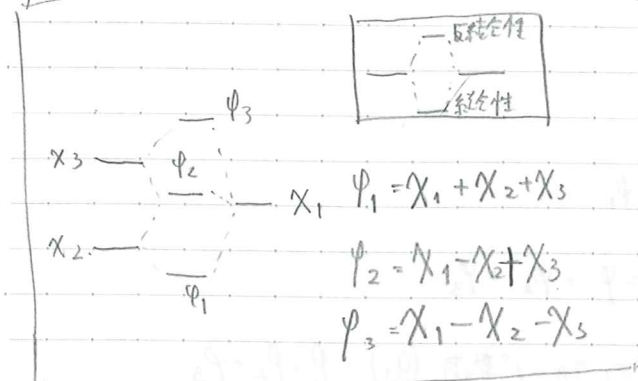 反結合性
結合性
φ3
χ3
φ2
χ1
χ2
φ1
φ1 = χ1 + χ2 + χ3
φ2 = χ1 - χ2 + χ3
φ3 = χ1 - χ2 - χ3